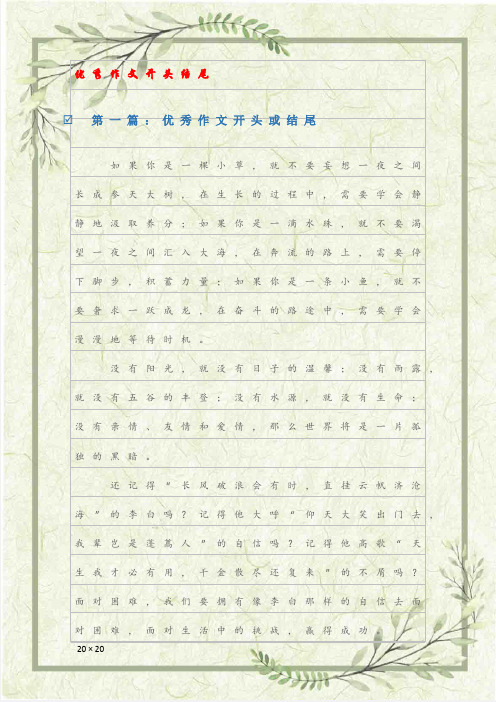 优秀作文开头结尾
☑ 第一篇:优秀作文开头或结尾
如果你是一棵小草,就不要妄想一夜之间
长成参天大树,在生长的过程中,需要学会静
静地汲取养分;如果你是一滴水珠,就不要渴
望一夜之间汇入大海,在奔流的路上,需要停
下脚步,积蓄力量;如果你是一条小鱼,就不
要奢求一跃成龙,在奋斗的路途中,需要学会
漫漫地等待时机。
没有阳光,就没有日子的温馨;没有雨露,
就没有五谷的丰登;没有水源,就没有生命;
没有亲情、友情和爱情,那么世界将是一片孤
独的黑暗。
还记得“长风破浪会有时,直挂云帆济沧
海”的李白吗?记得他大呼“仰天大笑出门去,
我辈岂是蓬蒿人”的自信吗?记得他高歌“天
生我才必有用,千金散尽还复来”的不屑吗?
面对困难,我们要拥有像李白那样的自信去面
对困难,面对生活中的挑战,赢得成功
20×20